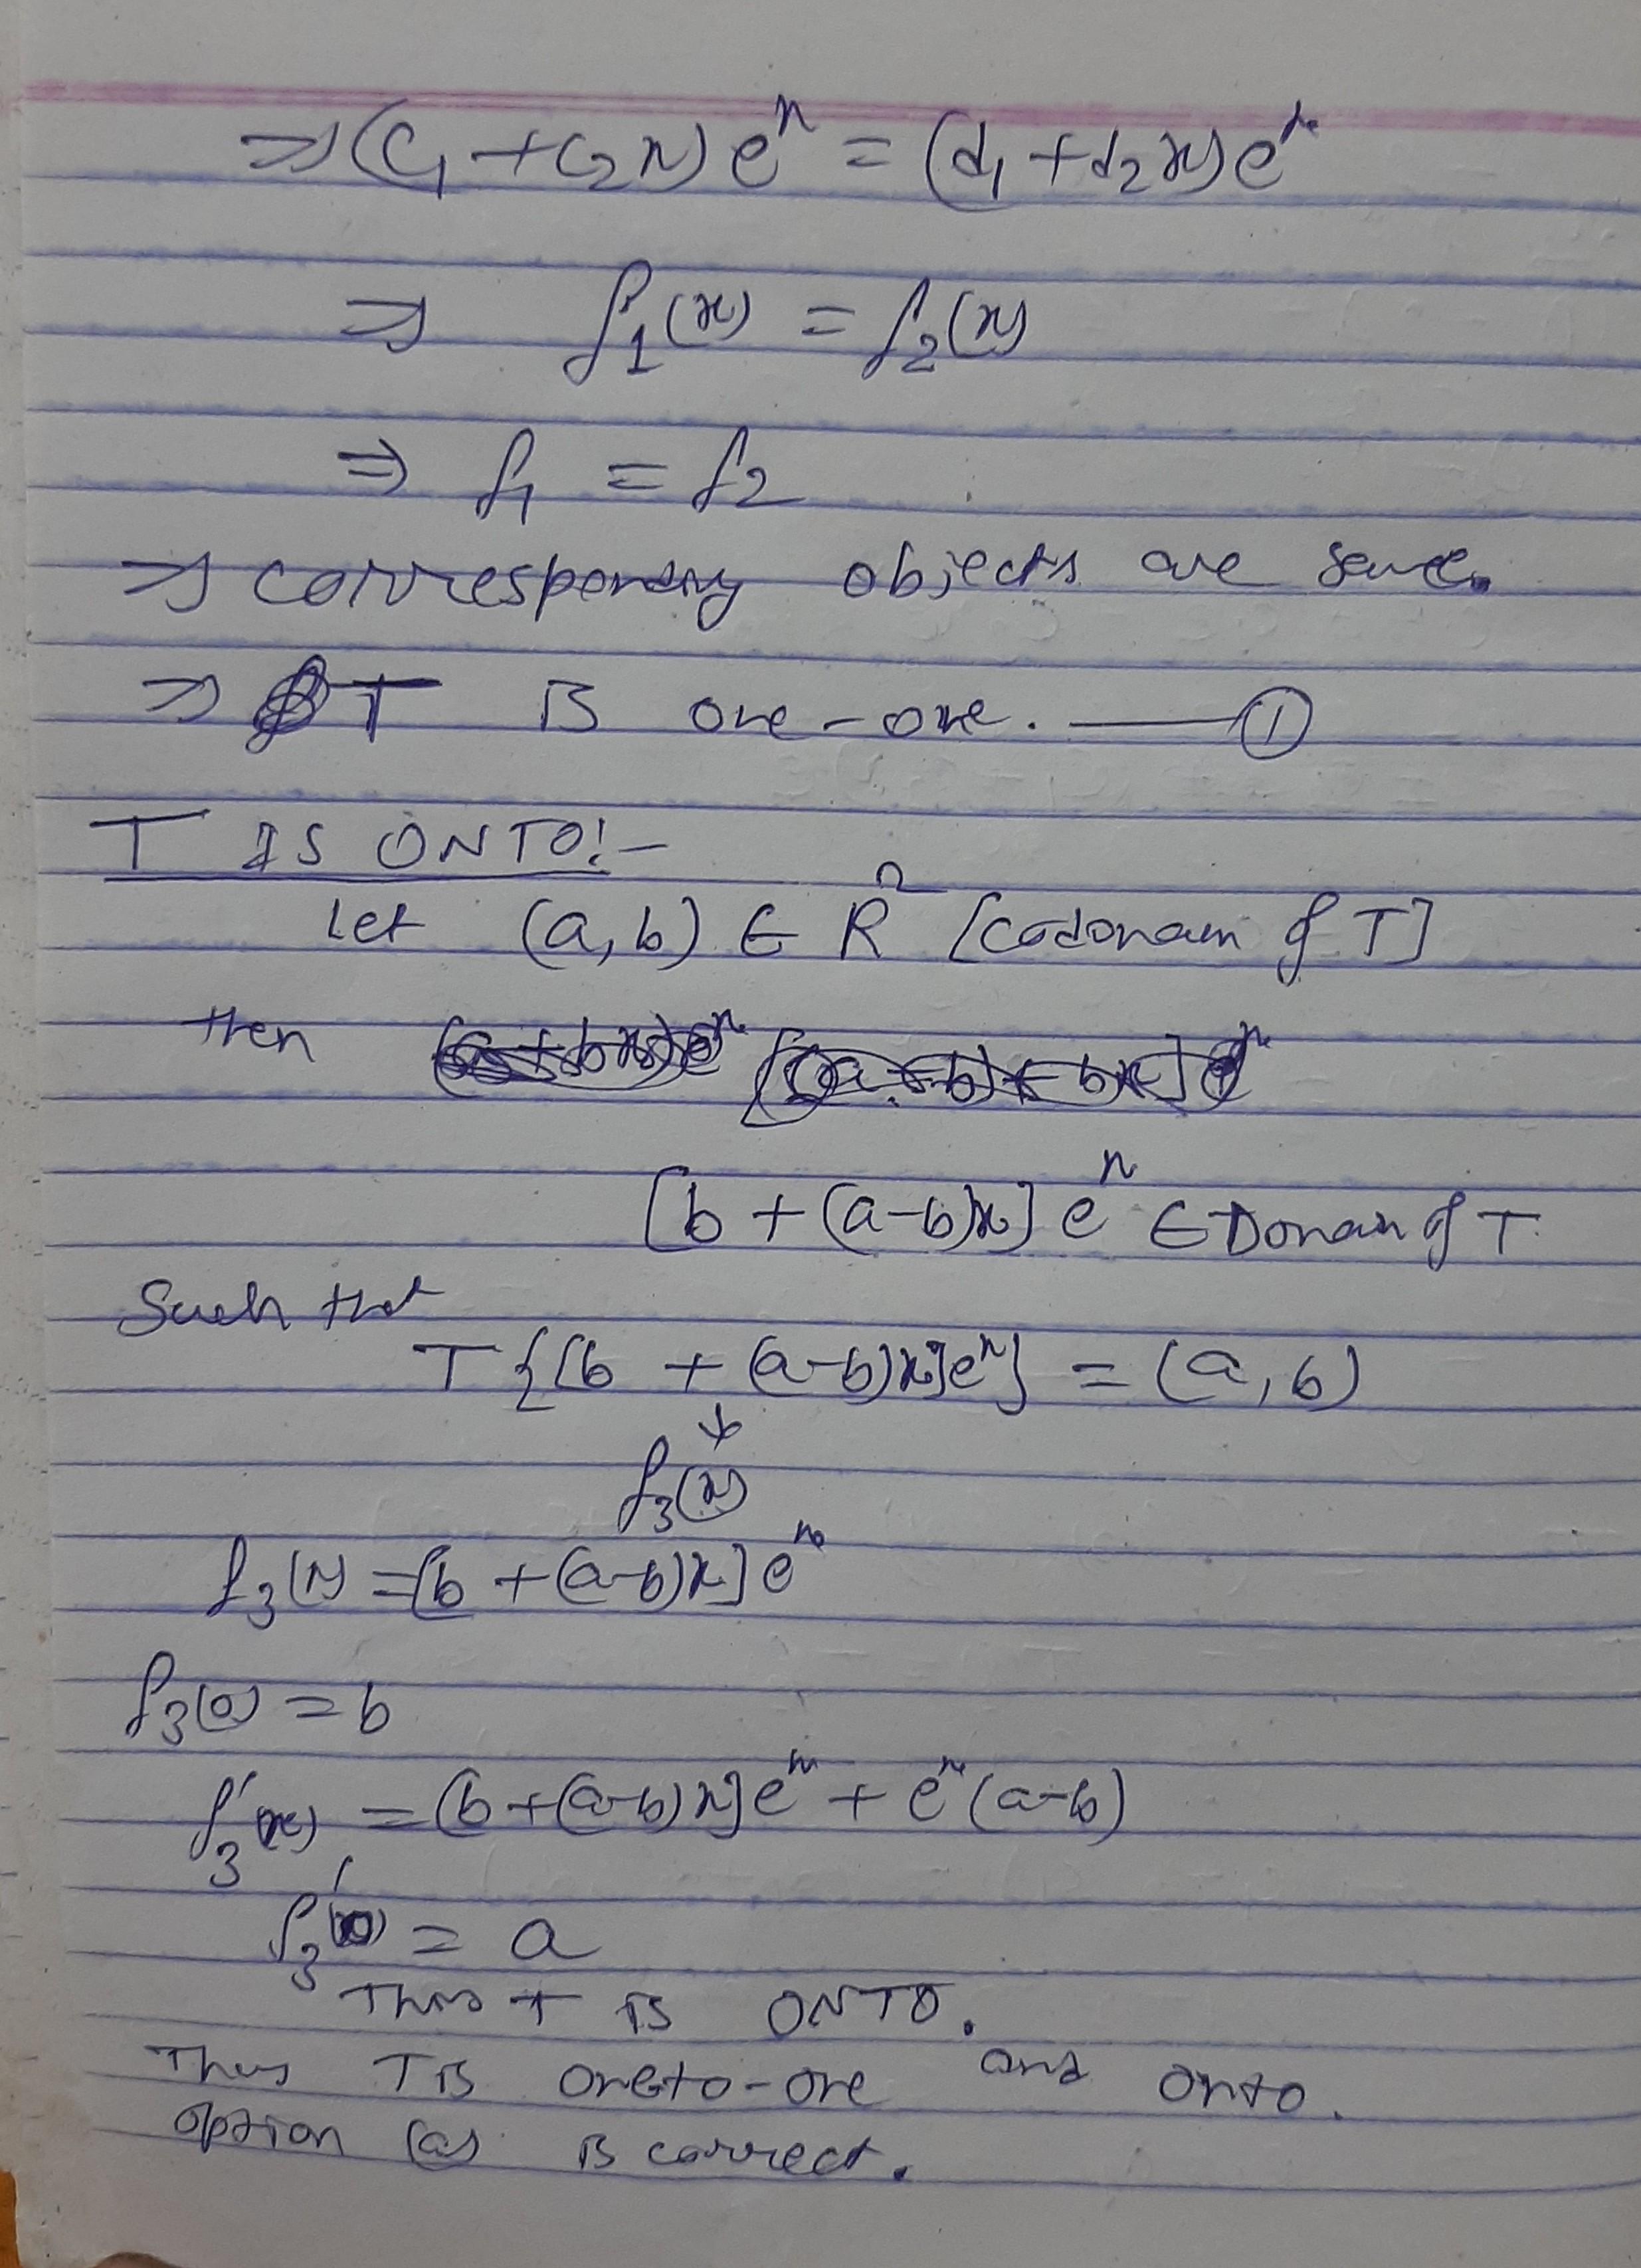 ⇒ (c₁ + c₂x) eˣ = (d₁ + d₂x) eˣ
⇒ f₁(x) = f₂(x)
⇒ f₁ = f₂
⇒ corresponding objects are same.
⇒ T is one-one. — ①
T IS ONTO:-
Let (a, b) ∈ R² [Codomain of T]
then
[b + (a-b)x] eˣ ∈ Domain of T.
Such that
T{[b + (a-b)x]eˣ} = (a, b)
↓
f₃(x)
f₃(x) = [b + (a-b)x] eˣ
f₃(0) = b
f₃'(x) = [b + (a-b)x]eˣ + eˣ(a-b)
f₃'(0) = a
Thus T is ONTO.
Thus T is one-to-one and onto.
option (a) is correct.